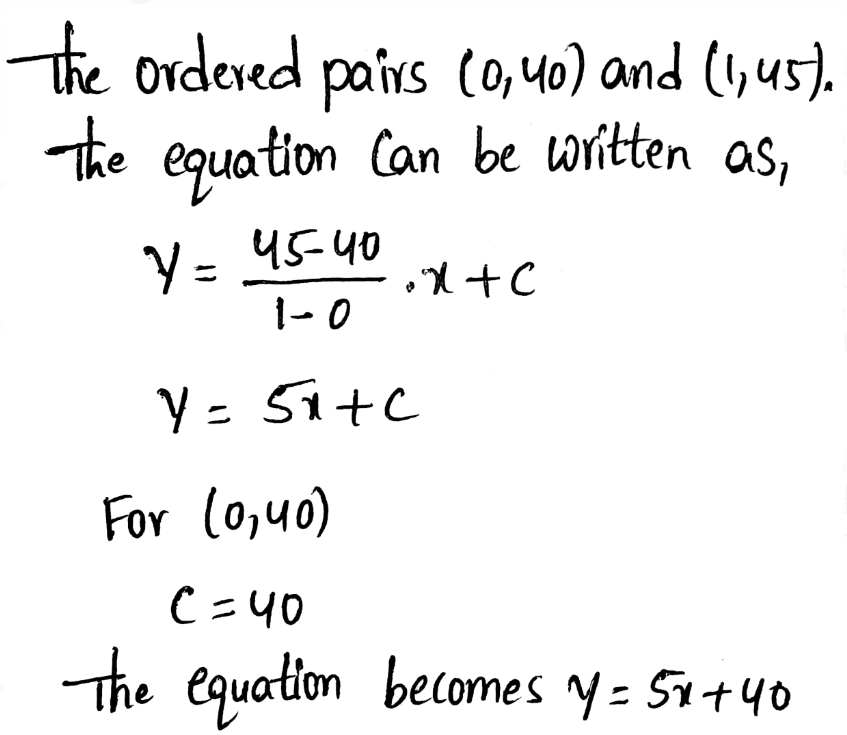 The ordered pairs (0,40) and (1,45).
The equation Can be written as,
y = 45-40 / 1-0 . x + C
y = 5x + C
For (0,40)
C = 40
The equation becomes y = 5x + 40